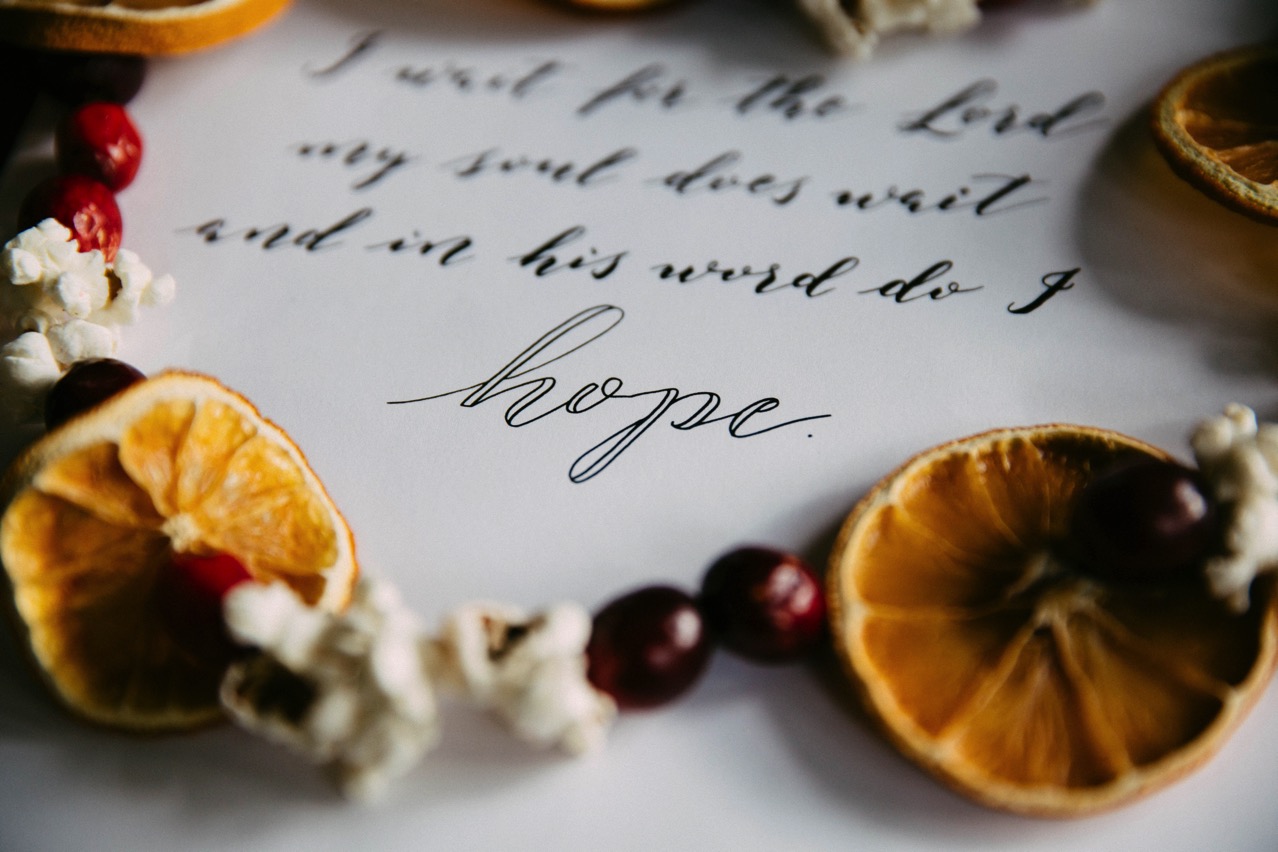 I wait for the Lord
my soul does wait
and in his word do I
hope.